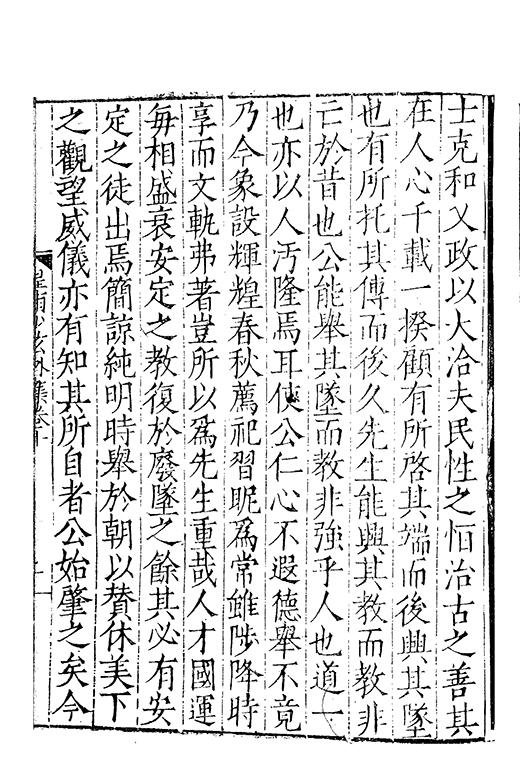 士克和乂政以大洽夫民性之恒治古之善其
在人心千載一揆顧有所啓其端而後興其墜
也有所托其傳而後久先生能興其教而教非
亡於昔也公能舉其墜而教非強乎人也道一
也亦以人汚隆焉耳使公仁心不遐德舉不竟
乃今象設輝煌春秋薦祀習眤爲常雖陟降時
享而文軌弗著豈所以爲先生重哉人才國運
每相盛衰安定之教復於廢墜之餘其必有安
定之徒出焉簡諒純明時舉於朝以賛休美下
之觀望威儀亦有知其所自者公始肇之矣今
皇甫少玄外集卷十